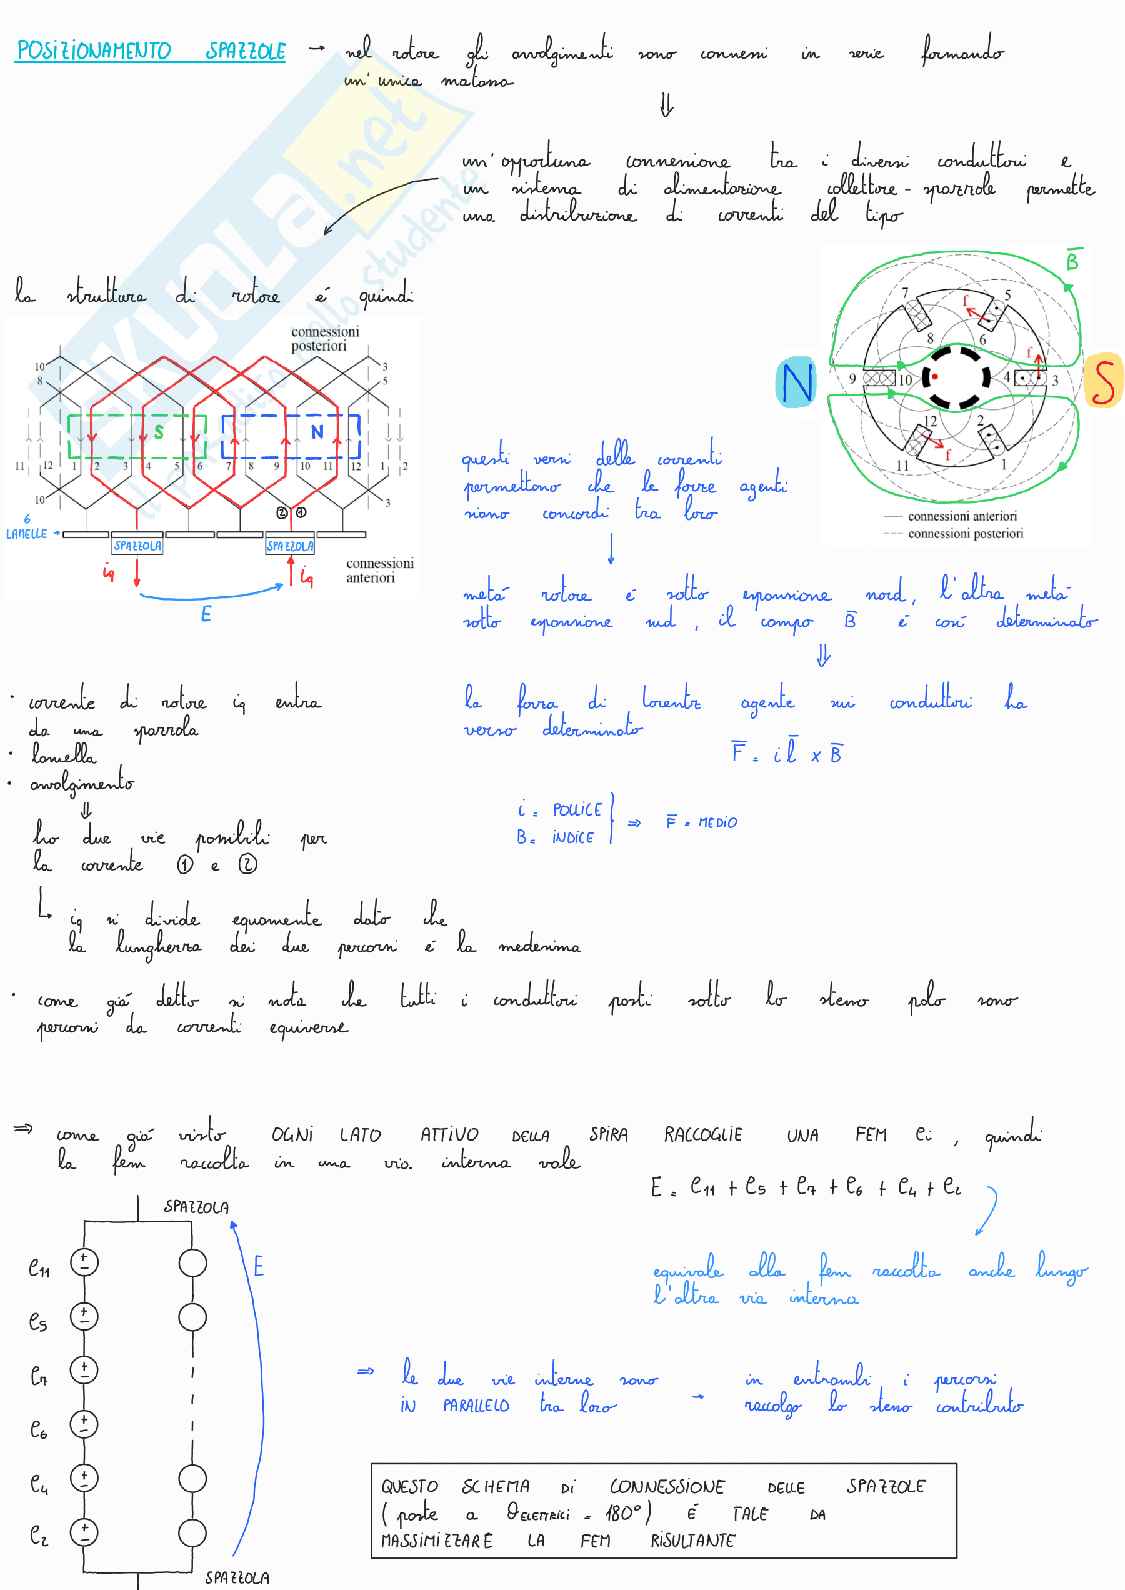 POSIZIONAMENTO SPAZZOLE → nel rotore gli avvolgimenti sono connessi in serie formando
un'unica matassa
⇓
un'opportuna connessione tra i diversi conduttori e
un sistema di alimentazione collettore-spazzole permette
una distribuzione di correnti del tipo
la struttura di rotore é quindi
connessioni
posteriori
10 3
8 5
S N
11 12 1 2 3 4 5 6 7 8 9 10 11 12 1 2
10 3
② ①
6
LAMELLE →
SPAZZOLA SPAZZOLA
iq iq
connessioni
anteriori
E
B̄
7 5
f
8 6
f
N 9 10 4 3 S
12 2
f
11 1
connessioni anteriori
connessioni posteriori
questi versi delle correnti
permettono che le forze agenti
siano concordi tra loro
↓
metá rotore é sotto espansione nord, l'altra metá
sotto espansione sud, il campo B̄ é cosí determinato
⇓
la forza di Lorentz agente sui conduttori ha
verso determinato
F̄ = i l̄ x B̄
i = POLLICE
B = INDICE
⇒ F̄ = MEDIO
· corrente di rotore iq entra
da una spazzola
· lamella
· avvolgimento
⇓
ho due vie possibili per
la corrente ① e ②
iq si divide equamente dato che
la lunghezza dei due percorsi é la medesima
· come giá detto si nota che tutti i conduttori posti sotto lo stesso polo sono
percorsi da correnti equiverse
⇒ come giá visto OGNI LATO ATTIVO DELLA SPIRA RACCOGLIE UNA FEM ei, quindi
la fem raccolta in una via interna vale
E = e11 + e5 + e7 + e6 + e4 + e2
equivale alla fem raccolta anche lungo
l'altra via interna
SPAZZOLA
e11
E
e5
e7
e6
e4
e2
SPAZZOLA
⇒ le due vie interne sono
IN PARALLELO tra loro
→ in entrambi i percorsi
raccolgo lo stesso contributo
QUESTO SCHEMA DI CONNESSIONE DELLE SPAZZOLE
(poste a θELETTRICI = 180°) É TALE DA
MASSIMIZZARE LA FEM RISULTANTE